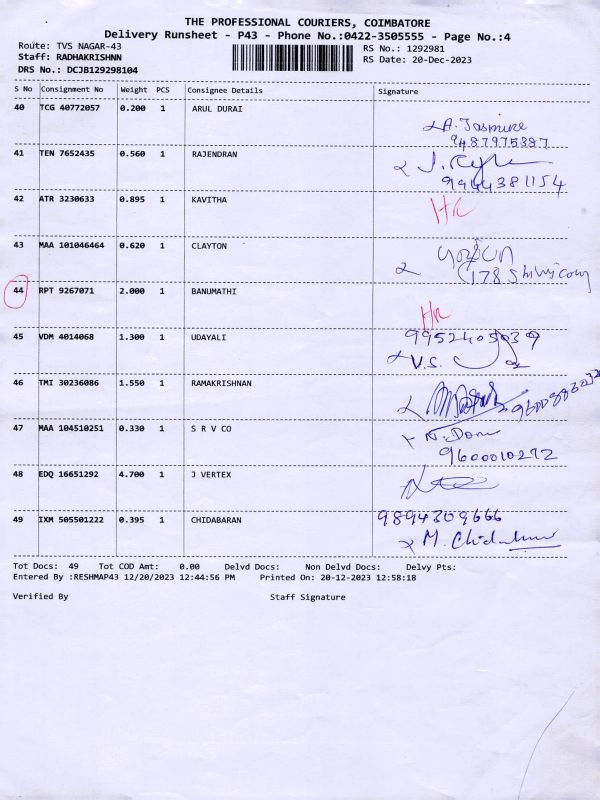 THE PROFESSIONAL COURIERS, COIMBATORE
Delivery Runsheet - P43 - Phone No.:0422-3505555 - Page No.:4
Route: TVS NAGAR-43 RS No.: 1292981
Staff: RADHAKRISHNN RS Date: 20-Dec-2023
DRS No.: DCJB129298104
S No Consignment No Weight PCS Consignee Details Signature
40 TCG 40772057 0.200 1 ARUL DURAI
A. Jasmine
9487975387
41 TEN 7652435 0.560 1 RAJENDRAN
9944381154
42 ATR 3230633 0.895 1 KAVITHA
43 MAA 101046464 0.620 1 CLAYTON
44 RPT 9267071 2.000 1 BANUMATHI
45 VDM 4014068 1.300 1 UDAYALI
9952405039
V.S.
46 TMI 30236086 1.550 1 RAMAKRISHNAN
47 MAA 104510251 0.330 1 S R V CO
9600010272
48 EDQ 16651292 4.700 1 J VERTEX
49 IXM 505501222 0.395 1 CHIDABARAN
9894309666
Tot Docs: 49 Tot COD Amt: 0.00 Delvd Docs: Non Delvd Docs: Delvy Pts:
Entered By :RESHMAP43 12/20/2023 12:44:56 PM Printed On: 20-12-2023 12:58:18
Verified By Staff Signature